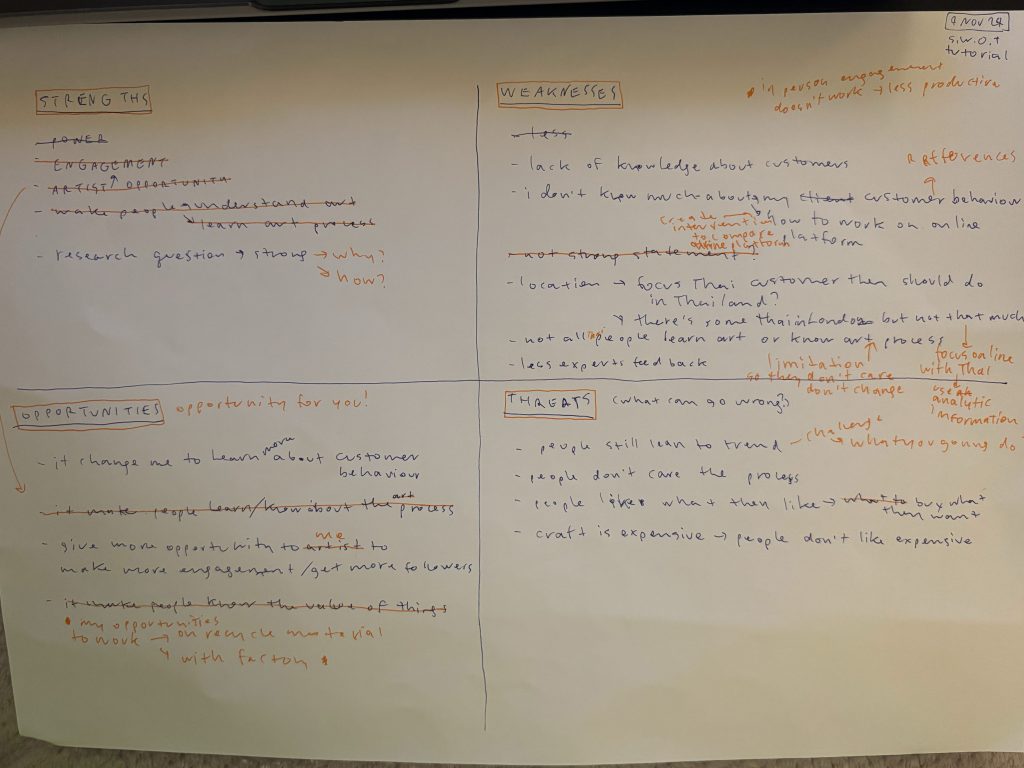 4 NOV 24
S.W.O.T
tutorial
STRENGTHS
- POWER
- ENGAGEMENT
- ARTIST OPPORTUNITY
- make people understand art
learn art process
- research question → strong → why?
how?
WEAKNESSES
• in person engagement
doesn't work → less productive
- less
- lack of knowledge about customers
Refferences
- i don't know much about my client customer behaviour
create
intervention
to compare
offline platform
how to work on online
platform
- not strong statement
- location → focus Thai customer then should do
in Thailand?
there's some thai in London but not that much
- not all Thai people learn art or know art process
- less experts feed back
limitation
so they don't care
don't change
focus online
with Thai
use
analytic
information
OPPORTUNITIES
opportunity for you!
- it change me to learn more about customer
behaviour
- it make people learn/know about the art process
- give more opportunity to artist me to
make more engagement/get more followers
- it make people know the value of things
• my opportunities
to work → on recycle material
with factory •
THREATS
(what can go wrong?)
- people still lean to trend - challenge
→ what you gonna do
- people don't care the process
- people like what then like → what to buy what
they want
- craft is expensive → people don't like expensive